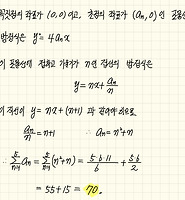 꼭짓점의 좌표가 (0,0)이고, 초점의 좌표가 (aₙ,0)인 포물선
방정식은 y² = 4aₙx
이 포물선에 접하고 기울기가 n인 접선의 방정식은
y = nx + aₙ/n
이 직선이 y = nx + (n+1) 과 같아야 하므로
aₙ/n = n+1 ∴ aₙ = n²+n
∴ Σ(n=1→5) aₙ = Σ(n=1→5) (n²+n) = 5·6·11/6 + 5·6/2
= 55+15 = 70.